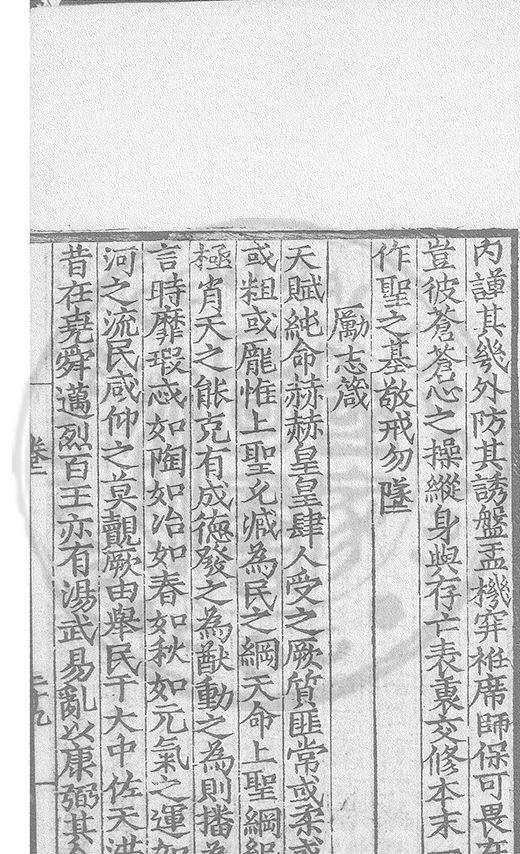 內謹其幾外防其誘盤盂機穽袵席師保可畏在
豈彼蒼蒼心之操縱身與存亡表裏交修本末一
作聖之基敬戒勿墜
勵志箴
天賦純命赫赫皇皇肆人受之厥質匪常或柔或
或粗或厖惟上聖允減為民之綱天命上聖綱紀
極肖天之能克有成德發之為猷動之為則播為
言時靡瑕忒如陶如冶如春如秋如元氣之運如
河之流民咸仰之莫覿厥由舉民于大中佐天洪
昔在堯舜邁烈百王亦有湯武易亂以康弼其
二十九